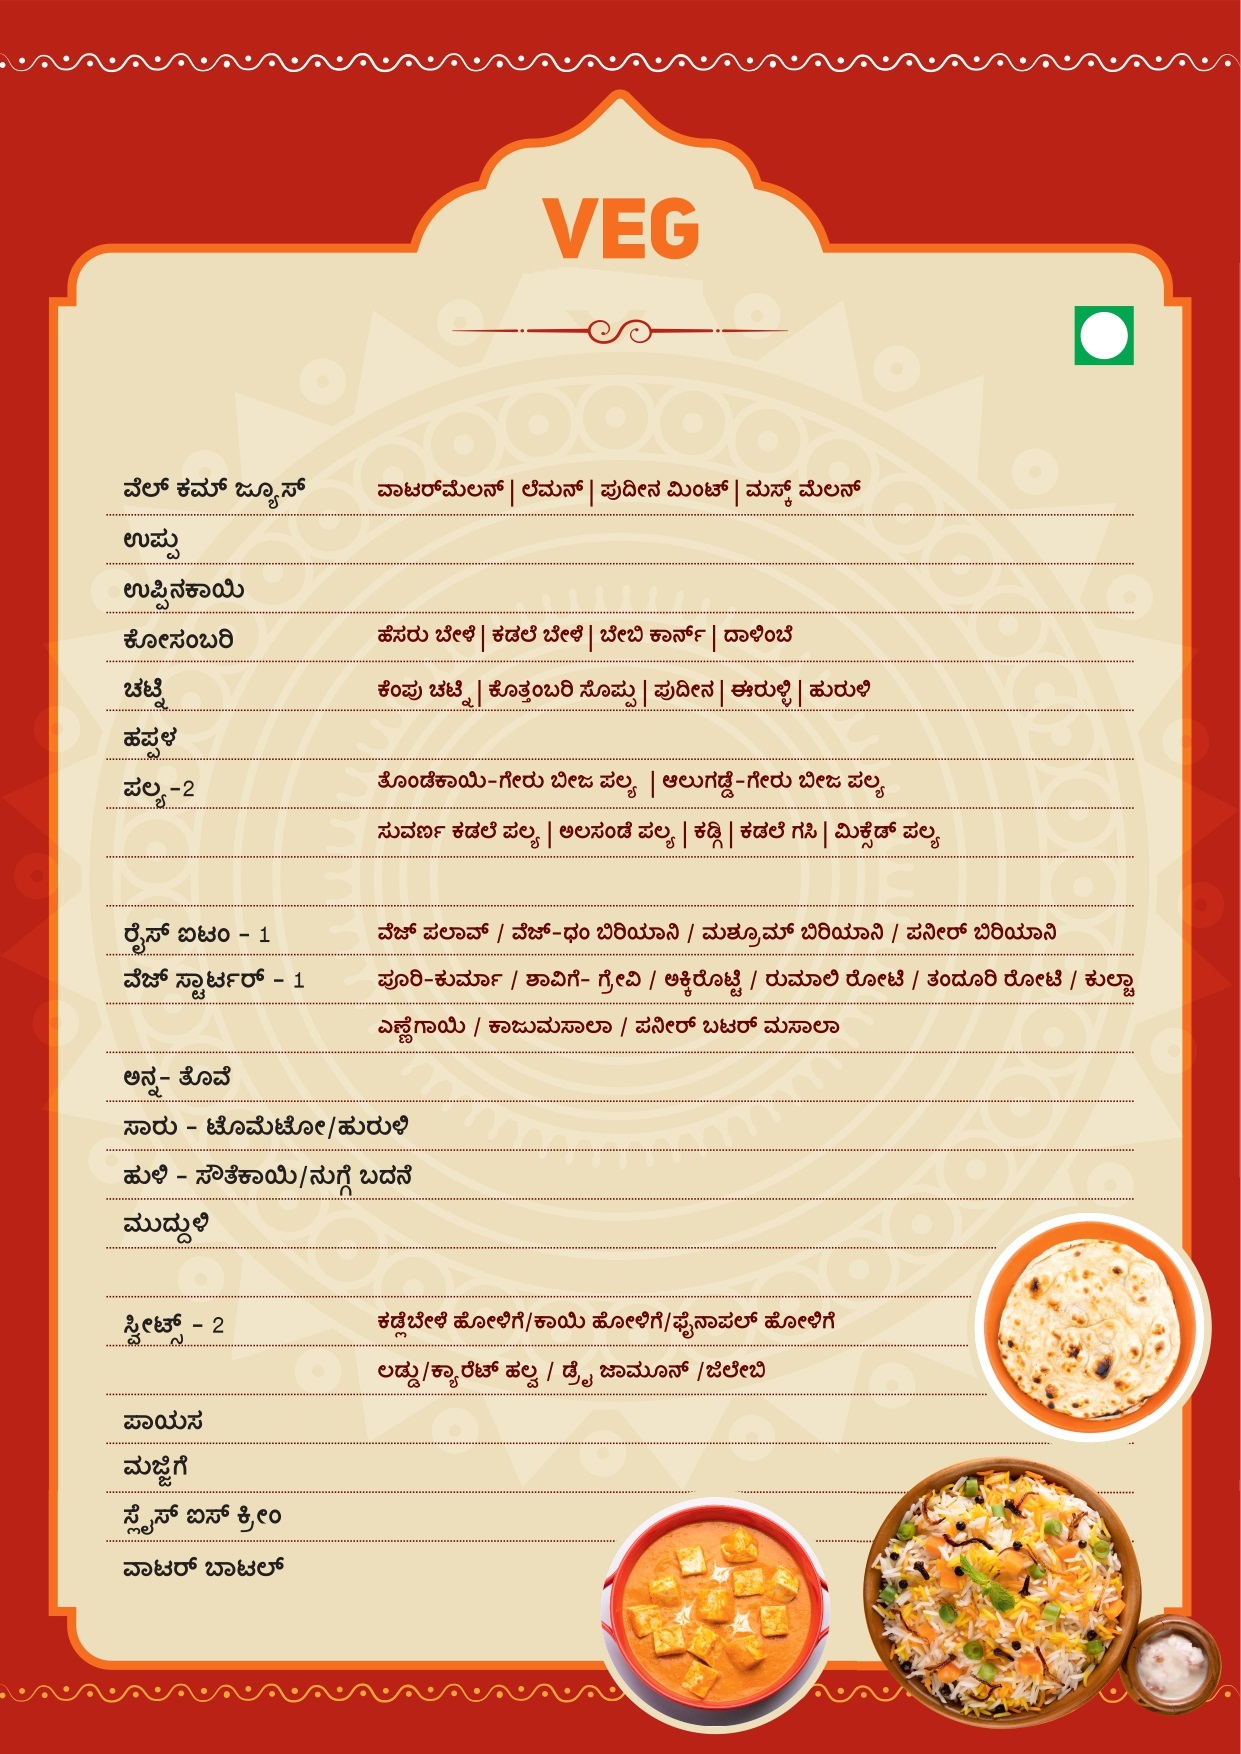 VEG
ವೆಲ್ ಕಮ್ ಜ್ಯೂಸ್ ವಾಟರ್‌ಮೆಲನ್ | ಲೆಮನ್ | ಪುದೀನ ಮಿಂಟ್ | ಮಸ್ಕ್ ಮೆಲನ್
ಉಪ್ಪು
ಉಪ್ಪಿನಕಾಯಿ
ಕೋಸಂಬರಿ ಹೆಸರು ಬೇಳೆ | ಕಡಲೆ ಬೇಳೆ | ಬೇಬಿ ಕಾರ್ನ್ | ದಾಳಿಂಬೆ
ಚಟ್ನಿ ಕೆಂಪು ಚಟ್ನಿ | ಕೊತ್ತಂಬರಿ ಸೊಪ್ಪು | ಪುದೀನ | ಈರುಳ್ಳಿ | ಹುರುಳಿ
ಹಪ್ಪಳ
ಪಲ್ಯ -2 ತೊಂಡೆಕಾಯಿ-ಗೇರು ಬೀಜ ಪಲ್ಯ | ಆಲುಗಡ್ಡೆ-ಗೇರು ಬೀಜ ಪಲ್ಯ
ಸುವರ್ಣ ಕಡಲೆ ಪಲ್ಯ | ಅಲಸಂಡೆ ಪಲ್ಯ | ಕಡ್ಗಿ | ಕಡಲೆ ಗಸಿ | ಮಿಕ್ಸೆಡ್ ಪಲ್ಯ
ರೈಸ್ ಐಟಂ - 1 ವೆಜ್ ಪಲಾವ್ / ವೆಜ್-ಧಂ ಬಿರಿಯಾನಿ / ಮಶ್ರೂಮ್ ಬಿರಿಯಾನಿ / ಪನೀರ್ ಬಿರಿಯಾನಿ
ವೆಜ್ ಸ್ಟಾರ್ಟರ್ - 1 ಪೂರಿ-ಕುರ್ಮಾ / ಶಾವಿಗೆ- ಗ್ರೇವಿ / ಅಕ್ಕಿರೊಟ್ಟಿ / ರುಮಾಲಿ ರೋಟಿ / ತಂದೂರಿ ರೋಟಿ / ಕುಲ್ಚಾ
ಎಣ್ಣೆಗಾಯಿ / ಕಾಜುಮಸಾಲಾ / ಪನೀರ್ ಬಟರ್ ಮಸಾಲಾ
ಅನ್ನ- ತೊವೆ
ಸಾರು - ಟೊಮೆಟೋ/ಹುರುಳಿ
ಹುಳಿ - ಸೌತೆಕಾಯಿ/ನುಗ್ಗೆ ಬದನೆ
ಮುದ್ದುಳಿ
ಸ್ವೀಟ್ಸ್ - 2 ಕಡ್ಲೆಬೇಳೆ ಹೋಳಿಗೆ/ಕಾಯಿ ಹೋಳಿಗೆ/ಫೈನಾಪಲ್ ಹೋಳಿಗೆ
ಲಡ್ಡು/ಕ್ಯಾರೆಟ್ ಹಲ್ವ / ಡ್ರೈ ಜಾಮೂನ್ /ಜಿಲೇಬಿ
ಪಾಯಸ
ಮಜ್ಜಿಗೆ
ಸ್ಲೈಸ್ ಐಸ್ ಕ್ರೀಂ
ವಾಟರ್ ಬಾಟಲ್